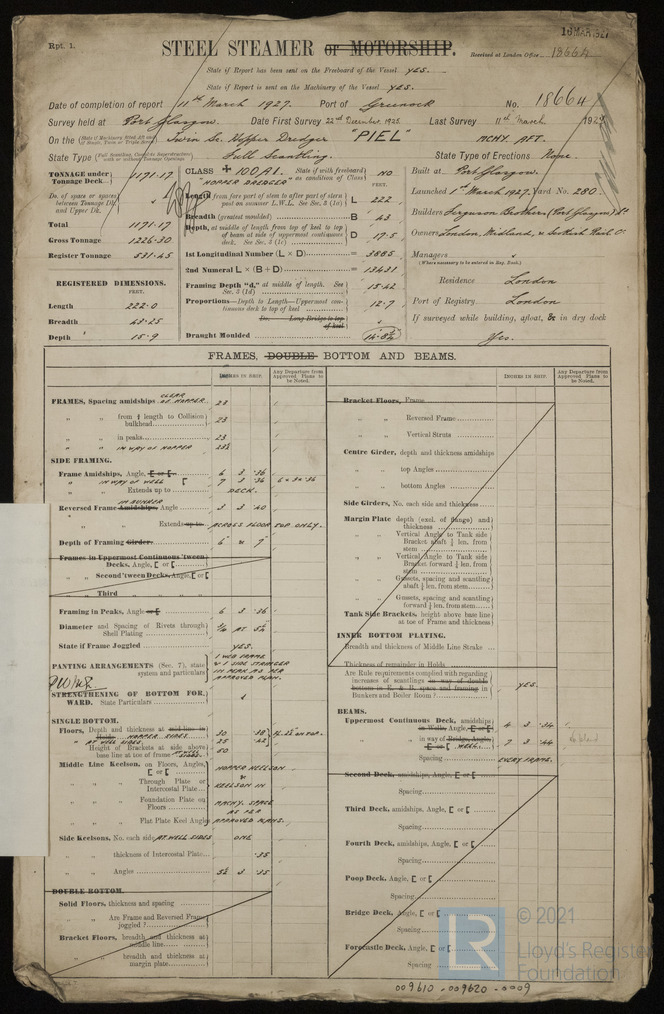 Rpt. 1.
16 MAR 1927
STEEL STEAMER or MOTORSHIP.
Received at London Office 18664
State if Report has been sent on the Freeboard of the Vessel YES.
State if Report is sent on the Machinery of the Vessel YES.
Date of completion of report 11th March 1927. Port of Greenock No. 18664
Survey held at Port Glasgow. Date First Survey 22nd December, 1925. Last Survey 11th March 1927
On the Twin Sc. Hopper Dredger "PIEL" MCHY. AFT.
State Type Full Scantling. State Type of Erections None.
TONNAGE under Tonnage Deck 1171.17
Do. of space or spaces between Tonnage Dk. and Upper Dk.
Total 1171.17
Gross Tonnage 1226.30
Register Tonnage 531.45
REGISTERED DIMENSIONS.
FEET.
Length 222.0
Breadth 43.25
Depth 15.9
CLASS + 100A1. State if with freeboard as condition of Class NO
"HOPPER DREDGER"
FEET.
Length from fore part of stem to after part of stern post on summer L.W.L. See Sec. 3 (1a) L 222
Breadth (greatest moulded) B 43
Depth, at middle of length, from top of keel to top of beam at side of uppermost continuous deck. See Sec. 3 (1c) D 17.5
1st Longitudinal Number (L × D) = 3885
2nd Numeral L × (B + D) = 13431
Framing Depth "d," at middle of length. See Sec. 3 (1d) 15.42
Proportions—Depth to Length—Uppermost continuous deck to top of keel 12.7
Do. Long Bridge to top of keel
Draught Moulded 14.8½
Built at Port Glasgow.
Launched 1st March 1927. Yard No. 280.
Builders Ferguson Brothers (Port Glasgow) Ld.
Owners London, Midland, & Scottish Rail. Co.
Managers
(Where necessary to be entered in Reg. Book.)
Residence London
Port of Registry London
If surveyed while building, afloat, & in dry dock
Yes.
FRAMES, DOUBLE BOTTOM AND BEAMS.
INCHES IN SHIP.
Any Departure from Approved Plans to be Noted.
INCHES IN SHIP.
Any Departure from Approved Plans to be Noted.
FRAMES, Spacing amidships CLEAR OF HOPPER 23
" " from ¾ length to Collision bulkhead 23
" " in peaks 23
" " IN WAY OF HOPPER
SIDE FRAMING.
Frame Amidships, Angle, [ or [ 6 3 .36
" IN WAY OF WELL [ 7 3 .36
" " Extends up to DECK.
IN BUNKER
Reversed Frame Amidships, Angle 3 3 .40
" " Extends up to ACROSS FLOOR TOP ONLY.
Depth of Framing Girder 6" & 7"
Frames in Uppermost Continuous 'tween Decks, Angle, [ or [
" Second 'tween Decks, Angle, [ or [
" Third "
Framing in Peaks, Angle or [ 6 3 .36
Diameter and Spacing of Rivets through Shell Plating
State if Frame Joggled YES.
PANTING ARRANGEMENTS (Sec. 7), state system and particulars
1 WEB FRAME & 1 SIDE STRINGER IN PEAK AS PER APPROVED PLAN.
STRENGTHENING OF BOTTOM FORWARD. State Particulars
SINGLE BOTTOM.
Floors, Depth and thickness at mid-line in Holds HOPPER SIDES 30 .38
" AT WELL SIDES 25 .42
Height of Brackets at side above base line at toe of frame 50
Middle Line Keelson, on Floors, Angles, [ or [ HOPPER KEELSON &
" " Through Plate or Intercostal Plate KEELSON IN
" " Foundation Plate on Floors MACHY. SPACE AS PER
" " Flat Plate Keel Angles APPROVED PLANS.
Side Keelsons, No. each side AT WELL SIDES ONE
" " thickness of Intercostal Plate .35
" " Angles 5½ 3 .35
DOUBLE BOTTOM.
Solid Floors, thickness and spacing
" " Are Frame and Reversed Frame joggled?
Bracket Floors, breadth and thickness at middle line
" " breadth and thickness at margin plate
Bracket Floors, Frame
" " Reversed Frame
" " Vertical Struts
Centre Girder, depth and thickness amidships
" " top Angles
" " bottom Angles
Side Girders, No. each side and thickness
Margin Plate depth (excl. of flange) and thickness
" " Vertical Angle to Tank side Bracket abaft ¼ len. from stem
" " Vertical Angle to Tank side Bracket forward ¼ len. from stem
" " Gussets, spacing and scantling abaft ¼ len. from stem
" " Gussets, spacing and scantling forward ¼ len. from stem
Tank Side Brackets, height above base line at toe of Frame and thickness
INNER BOTTOM PLATING.
Breadth and thickness of Middle Line Strake
Thickness of remainder in Holds
Are Rule requirements complied with regarding increases of scantlings in way of double bottom in E. & B. space and framing in Bunkers and Boiler Room? YES.
BEAMS.
Uppermost Continuous Deck, amidships in Wells, Angle, [ or [ 4 3 .34
" " in way of Bridge, Angle, [ or [ WELL. 7 3 .44
Spacing EVERY FRAME.
Second Deck, amidships, Angle, [ or [
Spacing
Third Deck, amidships, Angle, [ or [
Spacing
Fourth Deck, amidships, Angle, [ or [
Spacing
Poop Deck, Angle, [ or [
Spacing
Bridge Deck, Angle, [ or [
Spacing
Forecastle Deck, Angle, [ or [
Spacing
© 2021
Lloyd's Register
Foundation
LR
009610 - 009620 - 0009